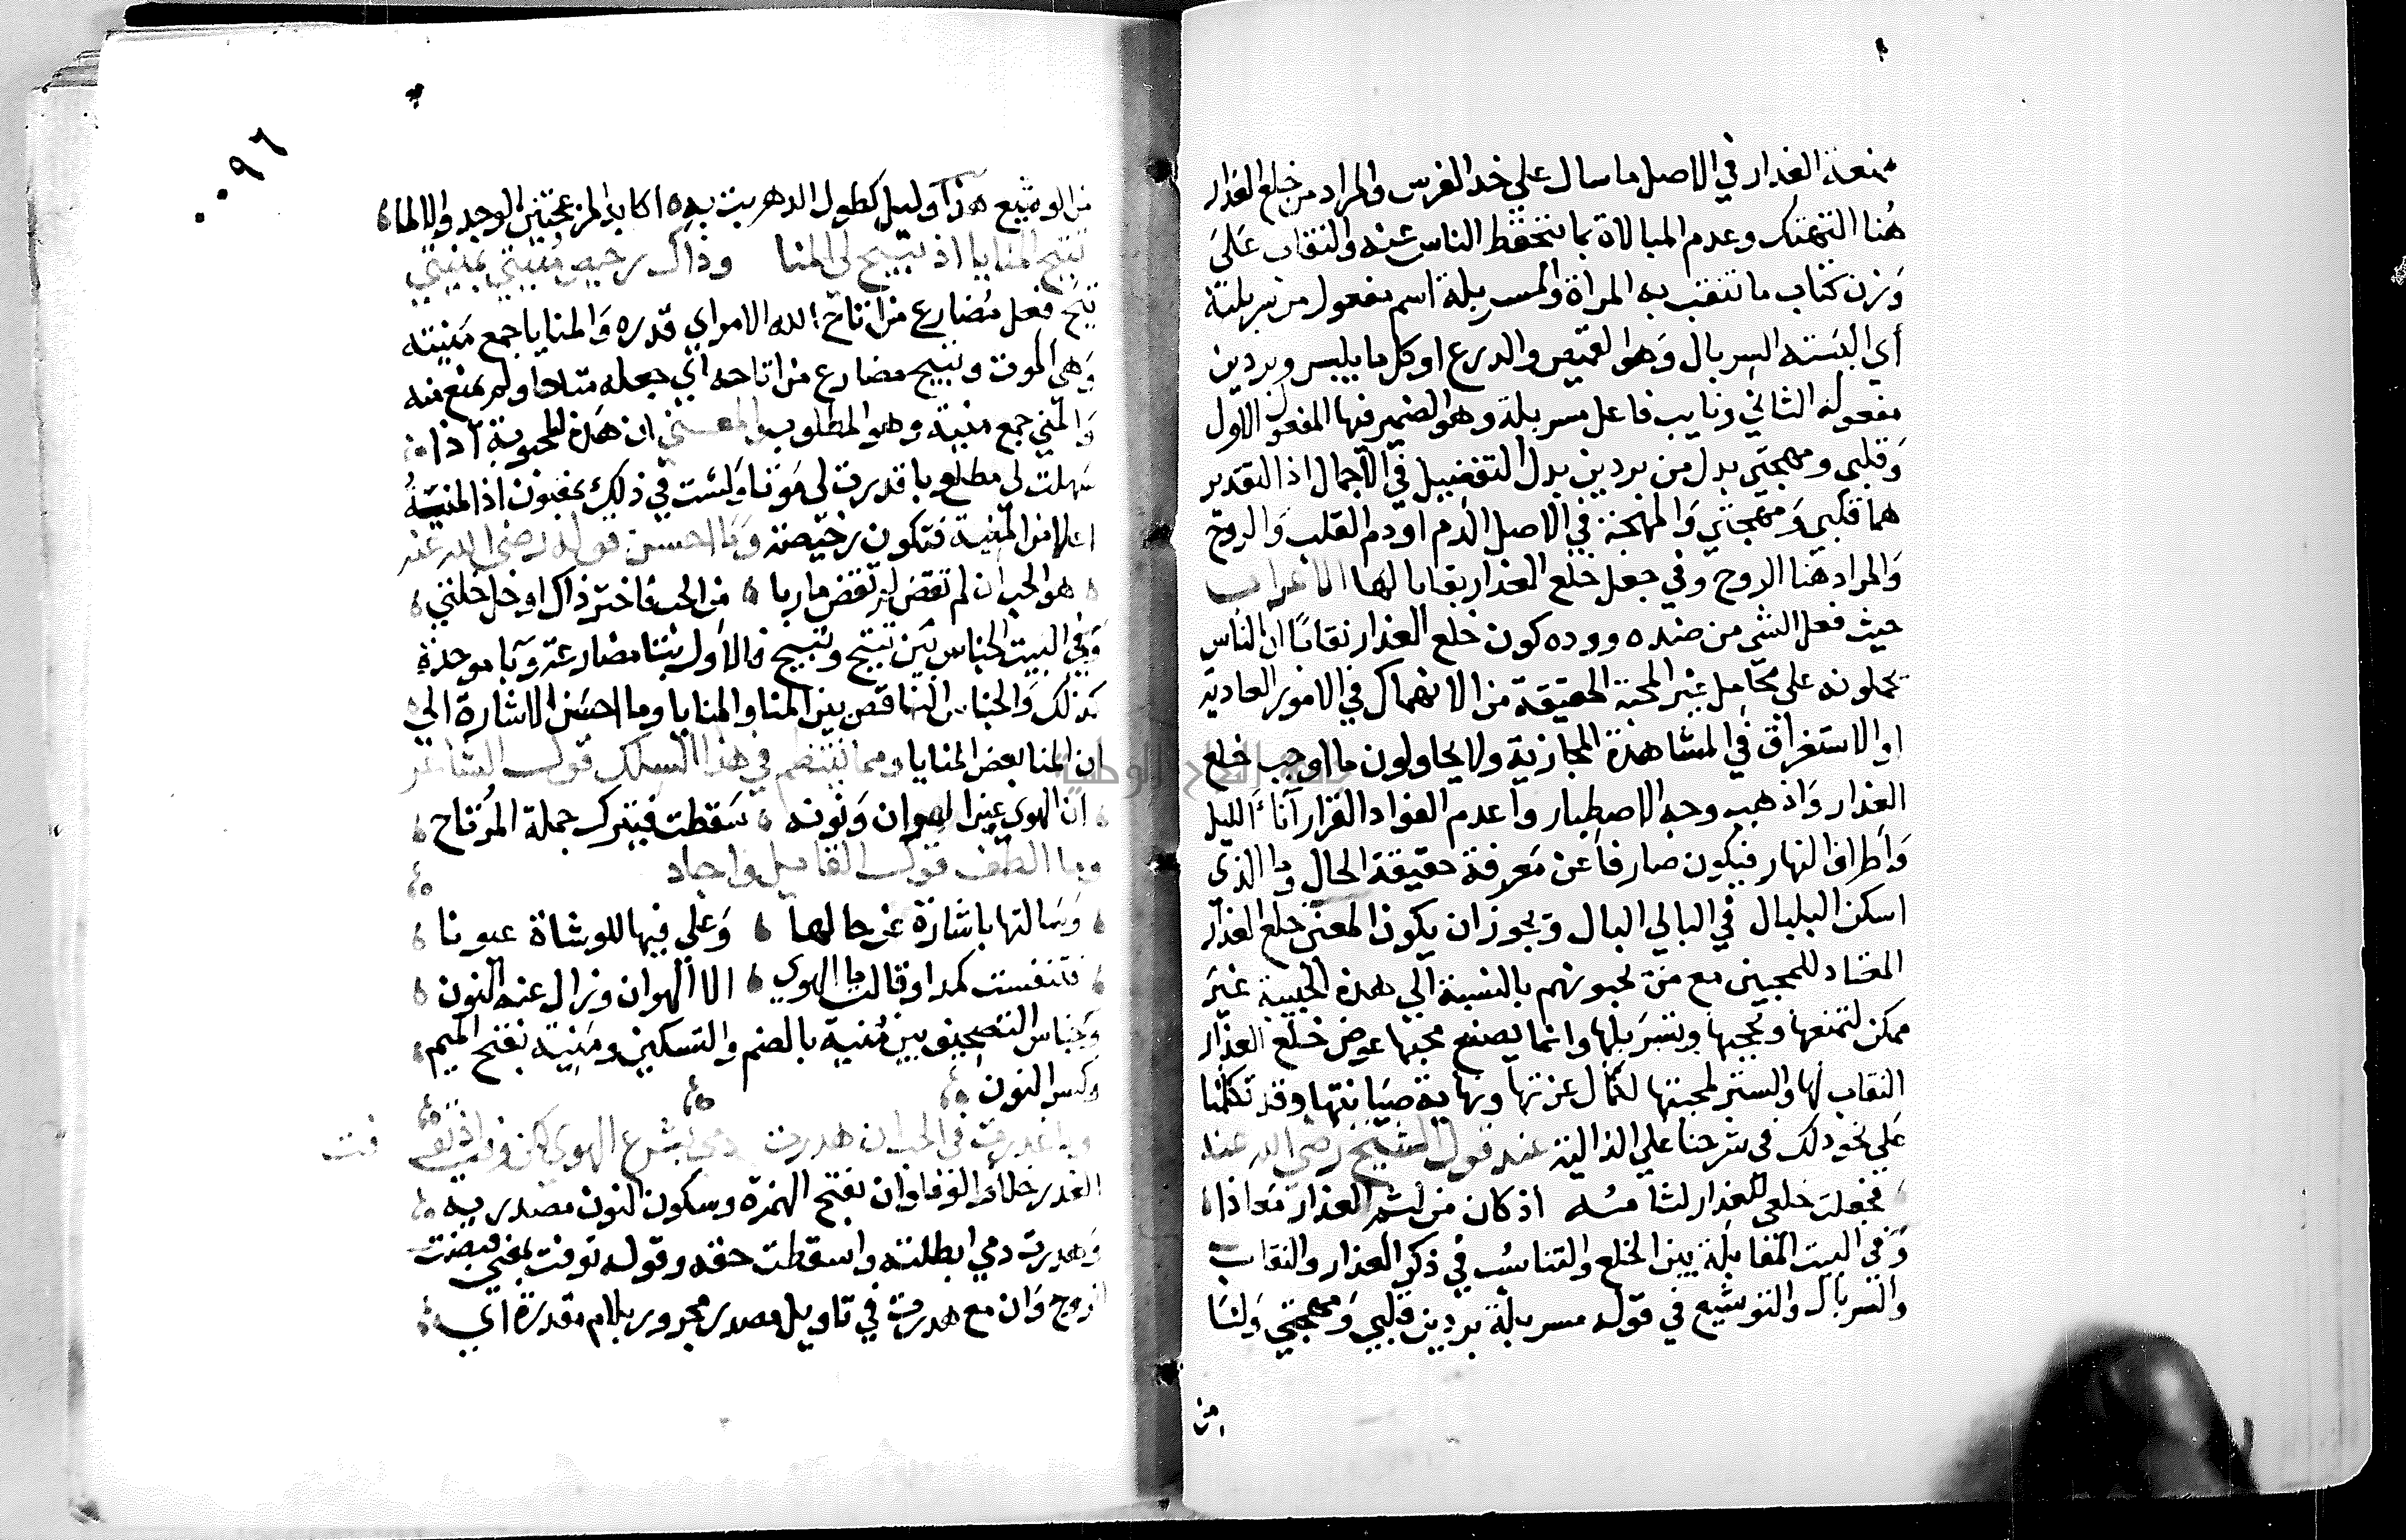 ممنعة العذار في الاصل ما سال علي خد الفرس والمراد من خلع العذار
هُنا التهتك وعدم المبالاة بما يتحفظ الناس عنه والنقاب عَلىَ
وَزن كتاب ما تنتقب به المراة والمسربلة اسم مفعول من سربلته
أي البَسته السربال وَهو القميص والدرع او كل ما يلبس وبردين
مفعوله الثاني ونايب فاعل مسربلة وهو الضمير فيها المفعول الاول
وَقلبي ومهجتي بدل من بردين بدل التفصيل في الاجمال اذ التقدير
هما قلبي وَمهجتي وَالمهجة في الاصل الدم او دم القلب وَالروح
وَالمراد هنا الروح وفي جعل خلع العذار نقابا لها الاغراب
حيث فعل الشي من ضده ووده كون خلع العذار نقابًا ان الناس
يحملونه على محَامِل غير المحبة الحقيقة من الانهماك في الامور العادية
او الاستغراق في المشاهدة المجازية ولا يحاولون ما اوجب خلع
العذار وَاذهب وجه الاصطبار واعدم الفواد القرار آناءَ الليل
وَأطراف النهار فيكون صارفاً عن مَعرفة حقيقة الحال والذي
اسكن البلبال في البالي البال ويجوز ان يكون المعنى خلع العذار
المعتاد للمحبين مع من يحبونهم بالنسبة الي هذه الحبيبة غيَر
ممكن لتمنعها وتحجبها وتسَربلها وانما يصنع محبها عوض خلع العذار
النقاب لها والستر لمحبتها لكمال عزتها ونهاية صيَانتها وقد تكلمنا
عَلي نحو ذلك في شرحنا علي الذالية عند قول الشيخ رضي الله عنه
فجعلت خلعي للعذار لثامه اذ كان من لثم العذار معاذا
وَفي البيت المقابلة بين الخلع والتناسُب في ذكر العذار والنقاب
والسربال والتوشيع في قوله مسربلة بردين قلبي وَمهجتي وَلنَا
من
٠٠٩٦
من التوشيع هذا وليل كطول الدهر بت به اكابد المزعجين الوجد والالما
تتيح المنايا اذ تبيح لي المنا وذاك رخيص مُنيتي بمَنِيتي
تتيح فعل مُضارع من اتاح الله الامر اي قدره وَالمنايا جمع مَنيته
وَهي الموت وتبيح مضارع من اباحه اي جعله مباحا ولم يمنع منه
وَالمني جمع منية وهو المطلوب والمعنى ان هَذه المحبوبة اذا
سَهلت لي مطلوبا قدرت لي مَوتا وَلست في ذلك بمغبون اذ المنيّةُ
اعلا من المَنية فتكون رخيصة وَما احسن قوله رضي الله عنه
هو الحب ان لم تقض لم تقض ماربا من الحب فاختر ذاك او خل خلتي
وَفي البيت الجناس بَين تتيح وتبيح فالاَول بتا مضارعة وَبا موحدة
كذلك وَالجناس الناقص بين المنا والمنايا وما احسَن الاشارة الي
ان المنا بعض المنايا ومما ينتظم في هذا السلك قول الشاعر
ان الهوى عين الهوان وَنونه سَقطت فيترك جملة المُرتاح
وما الطف قول القايل واجاد
وَسَالتها باشارة عن حالها وَعلي فيها للوشاة عيونا
فتنفست كمدا وقالت ما الهوي الا الهوان وزال عنه النون
وَجناس التصحيف بين مُنية بالضم والتسكين ومَنِية بفتح الميم
وكسر النون
وما غدرت في الحب ان هدرت دمي بشرع الهوى لكن وفت اذ توفت
الغدر خلاف الوفا وَان بفتح الهمزة وسكون النون مصدريه
وَهدرت دمي ابطلته واسقطت حقه وقوله توفت بمعني قبضت
الروح وَان مع هدرت في تاويل مصدر مجرور بلام مقدرة اي